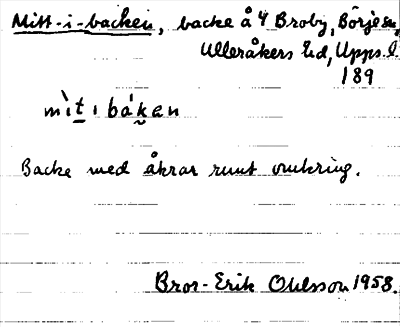 Mitt-i-backen, backe å 4 Broby, Börje sn,
Ulleråkers hd, Upps. l.
189
mìt ı bákan
Backe med åkrar runt omkring.
Bror-Erik Ohlsson 1958.